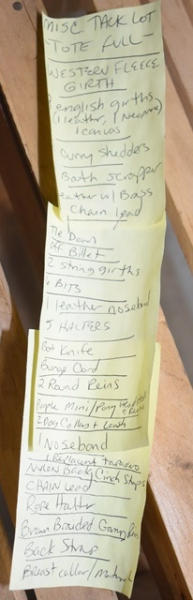 MISC TACK LOT
TOTE FULL -
WESTERN FLEECE
GIRTH
english girths
(1 leather, 1 Neoprene)
1 canvas
Curry Shedders
Bath Scrapper
Leather w/ Brass
Chain lead
Tie Down
Off Billet
2 string girths
BITS
1 leather noseband
5 HALTERS
Knife
Bungee Cord
2 Round Reins
Purple Mini/Pony
2 Dog Collars + Leash
1 Noseband
Nylon Back Cinch Straps
CHAIN Lead
Rope Halter
Brown Braided Reins
Back Strap
Breast collar/